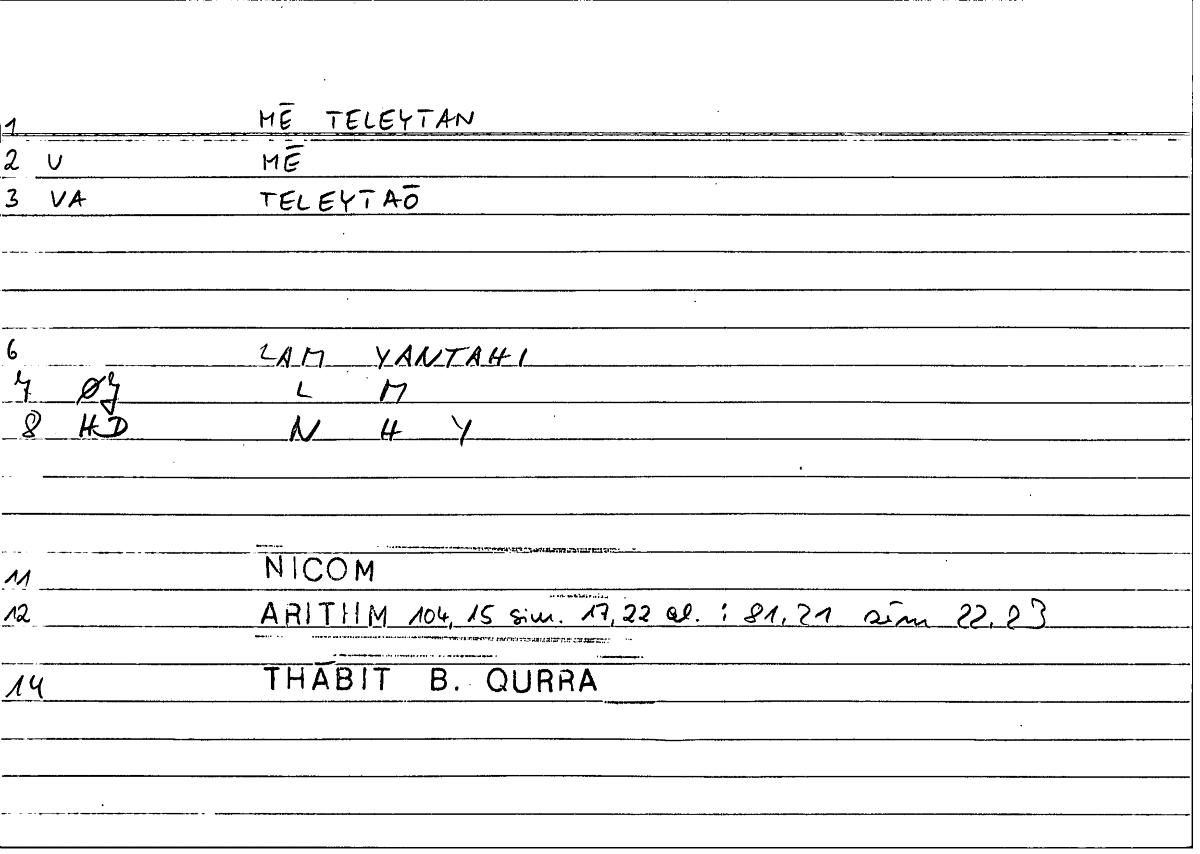 1 MĒ TELEYTAN
2 V MĒ
3 VA TELEYTAŌ
6 LAM YANTAHI
7 ØJ L M
8 HD N H Y
11 NICOM
12 ARITHM 104,15 sim. 17,22 al. : 81,21 sim 22,23
14 THĀBIT B. QURRA